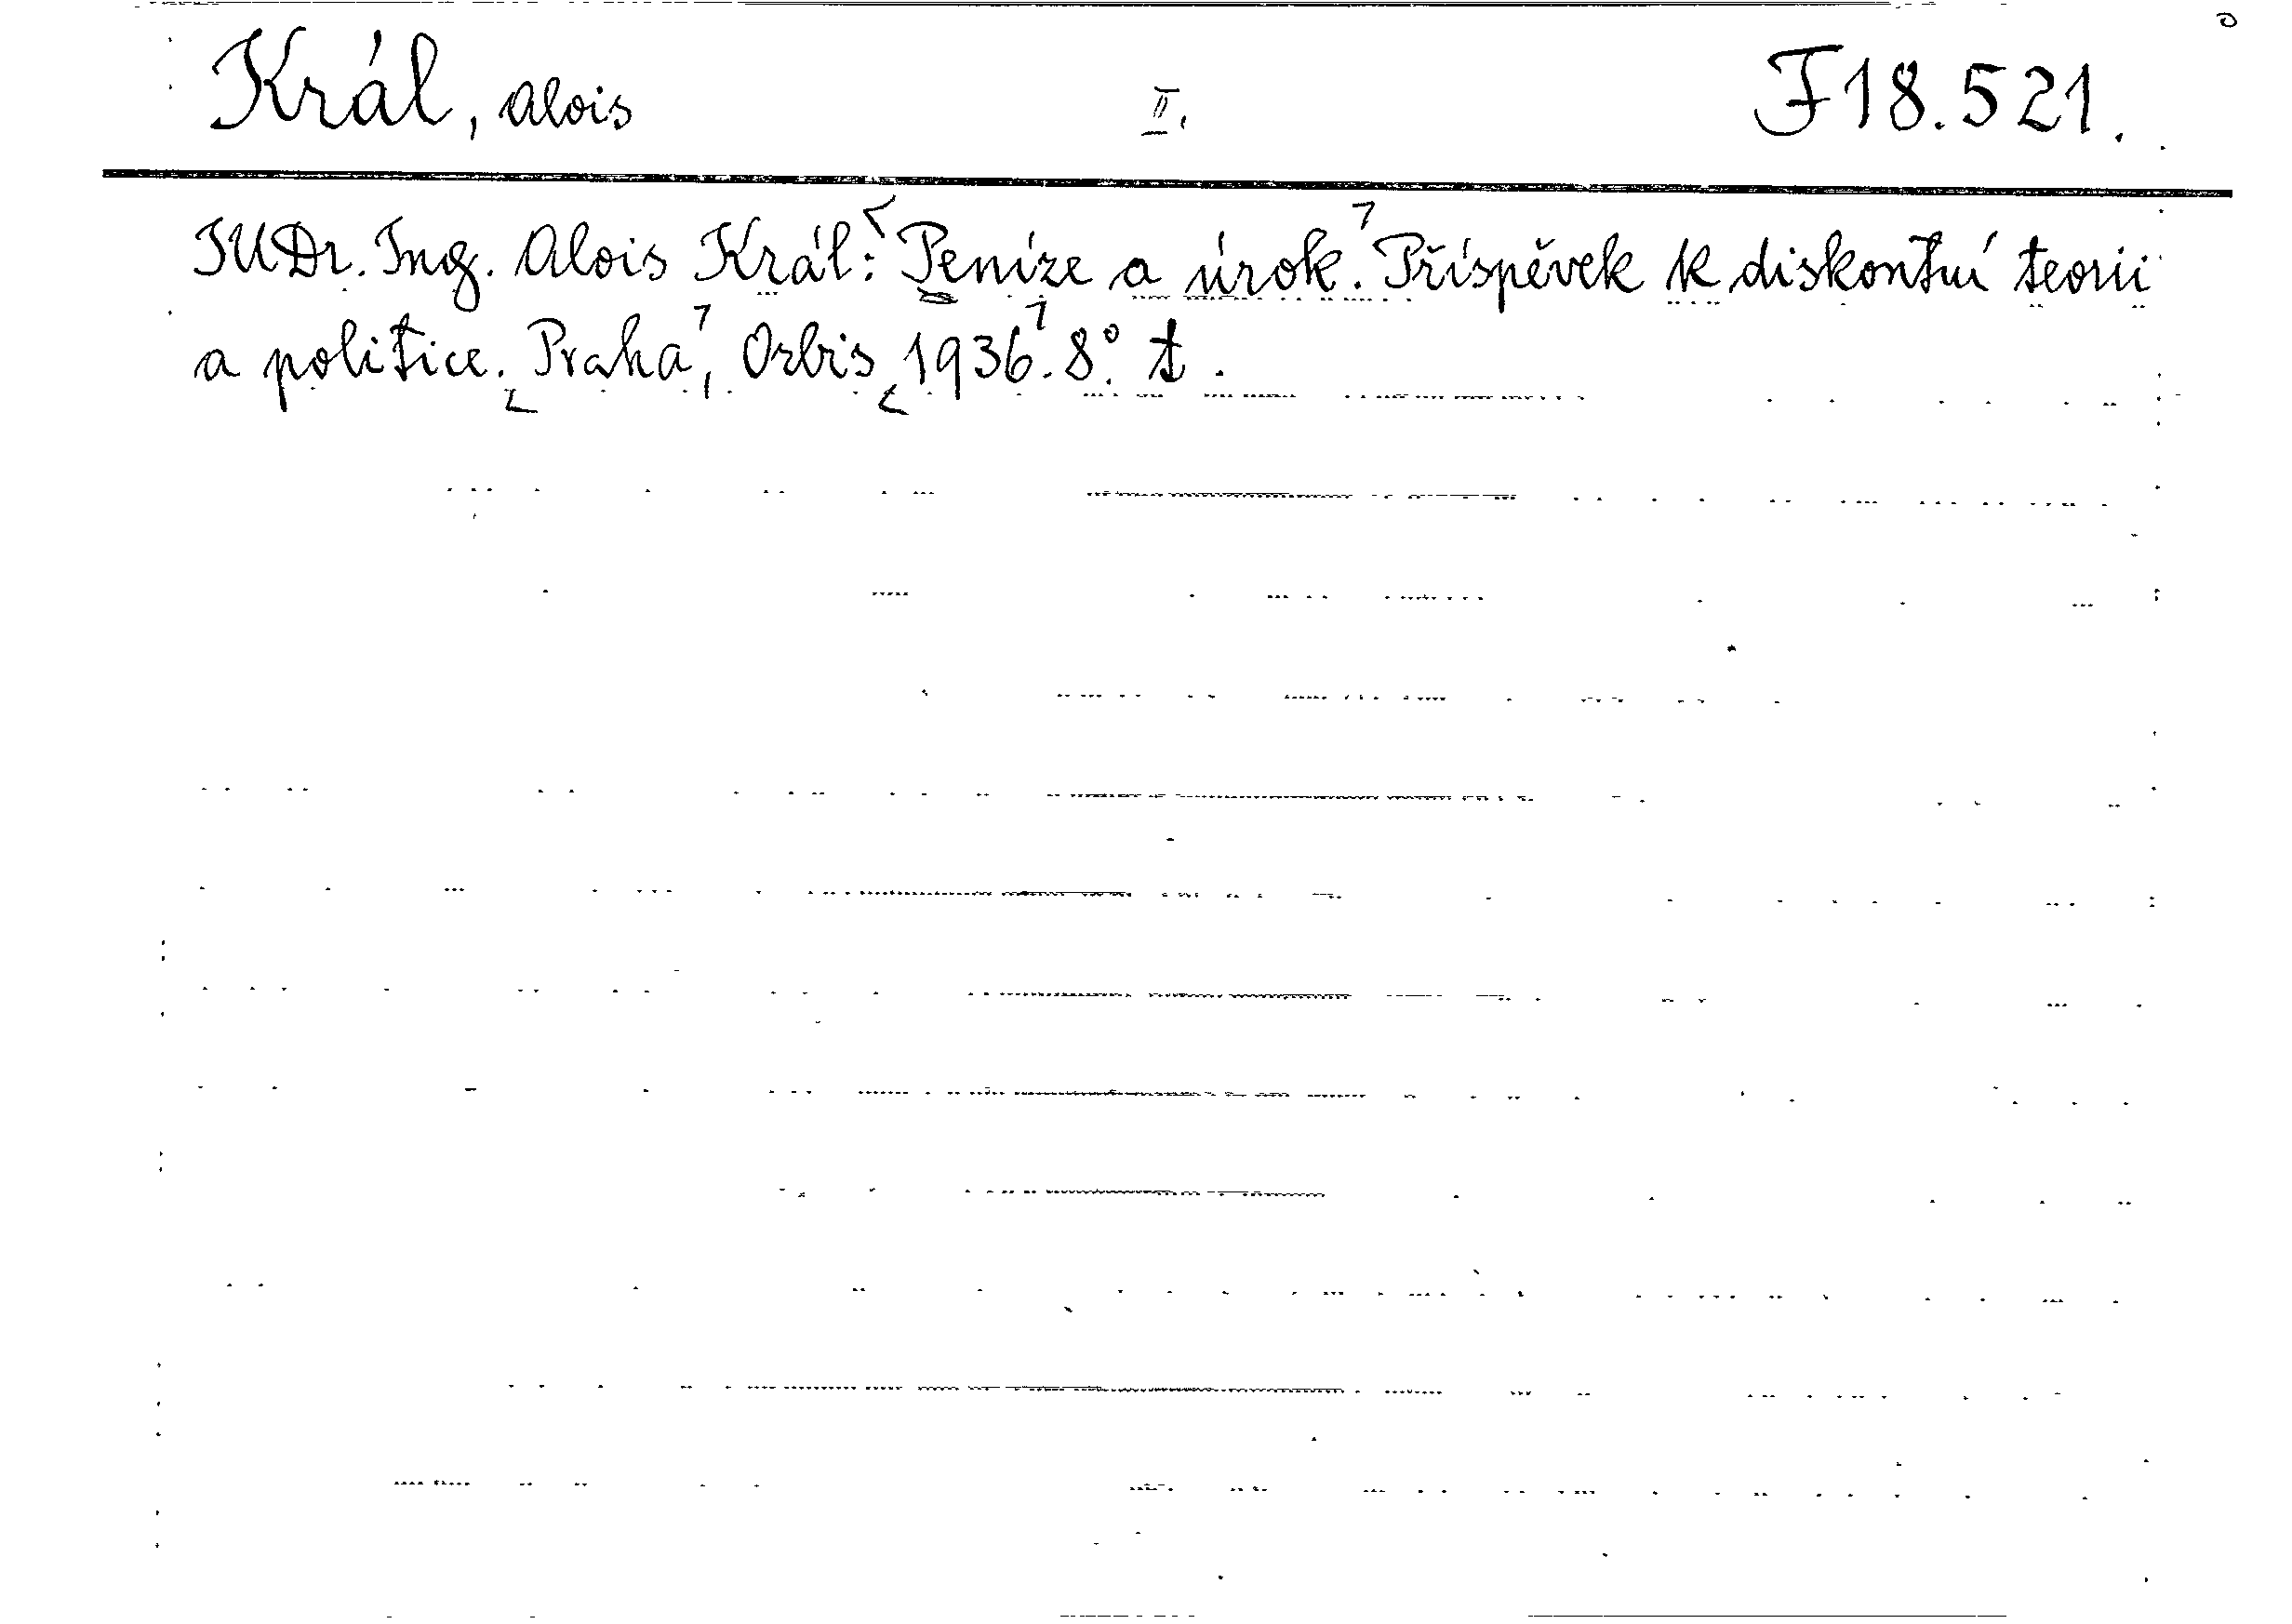 Král, Alois II. F 18.521.
JUDr. Ing. Alois Král: Peníze a úrok. Příspěvek k diskontní teorii
a politice. Praha, Orbis, 1936. 8°. t.